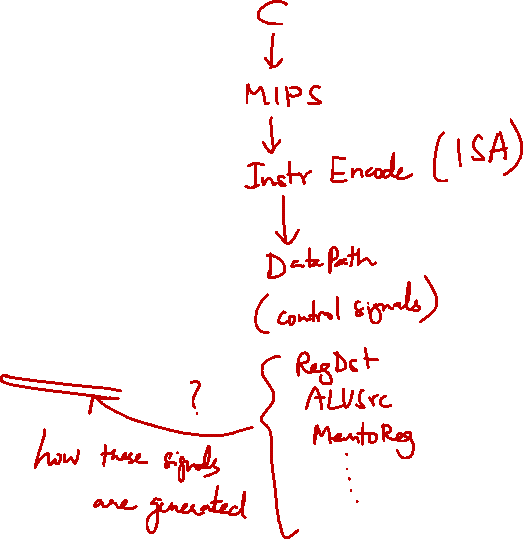 C
MIPS
Instr Encode (ISA)
DataPath
(control signals)
RegDst
ALUSrc
MemtoReg
?
how these signals
are generated